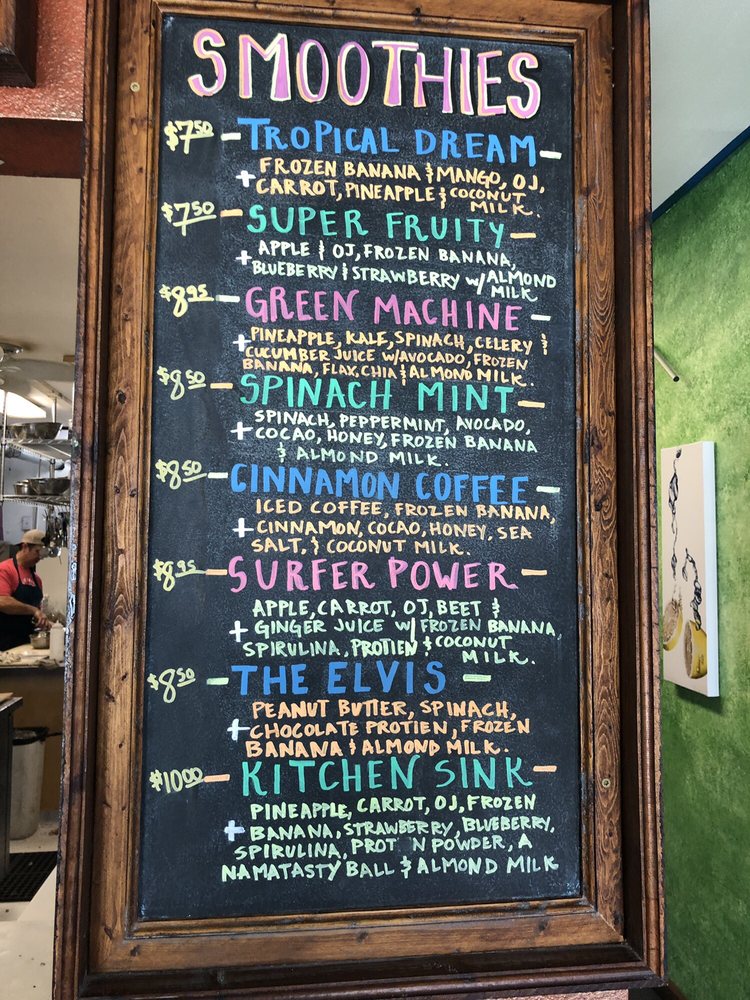 SMOOTHIES
$7.50 - TROPICAL DREAM -
+ FROZEN BANANA & MANGO, OJ,
CARROT, PINEAPPLE & COCONUT
MILK.
$7.50 - SUPER FRUITY -
+ APPLE & OJ, FROZEN BANANA,
BLUEBERRY & STRAWBERRY W/ ALMOND
MILK
$8.95 - GREEN MACHINE -
+ PINEAPPLE, KALE, SPINACH, CELERY &
CUCUMBER JUICE W/AVOCADO, FROZEN
BANANA, FLAX, CHIA & ALMOND MILK.
$8.50 - SPINACH MINT -
SPINACH, PEPPERMINT, AVOCADO,
+ COCAO, HONEY, FROZEN BANANA
& ALMOND MILK.
$8.50 - CINNAMON COFFEE -
ICED COFFEE, FROZEN BANANA,
+ CINNAMON, COCAO, HONEY, SEA
SALT, & COCONUT MILK.
$8.95 - SURFER POWER -
APPLE, CARROT, OJ, BEET &
+ GINGER JUICE W/ FROZEN BANANA,
SPIRULINA, PROTIEN & COCONUT
MILK.
$8.50 - THE ELVIS -
PEANUT BUTTER, SPINACH,
+ CHOCOLATE PROTIEN, FROZEN
BANANA & ALMOND MILK.
$10.00 - KITCHEN SINK -
PINEAPPLE, CARROT, OJ, FROZEN
+ BANANA, STRAWBERRY, BLUEBERRY,
SPIRULINA, PROT N POWDER, A
NAMATASTY BALL & ALMOND MILK